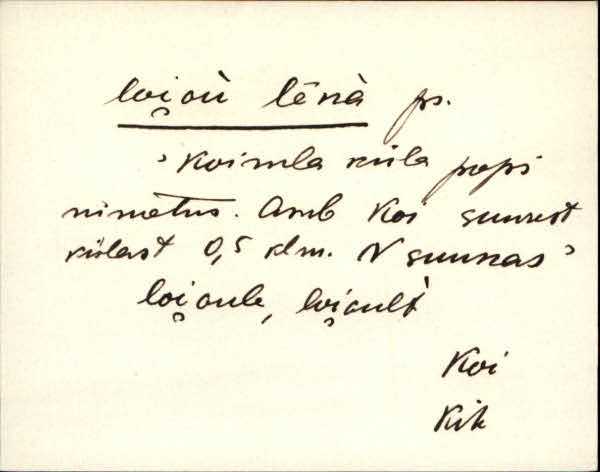 loi̯où lēnà ps.
'Koimla küla popsi
nimetus. Asub Koi suurest
külast 0,5 klm. N suunas'
loi̯oule, loi̯oult
Koi
Kik